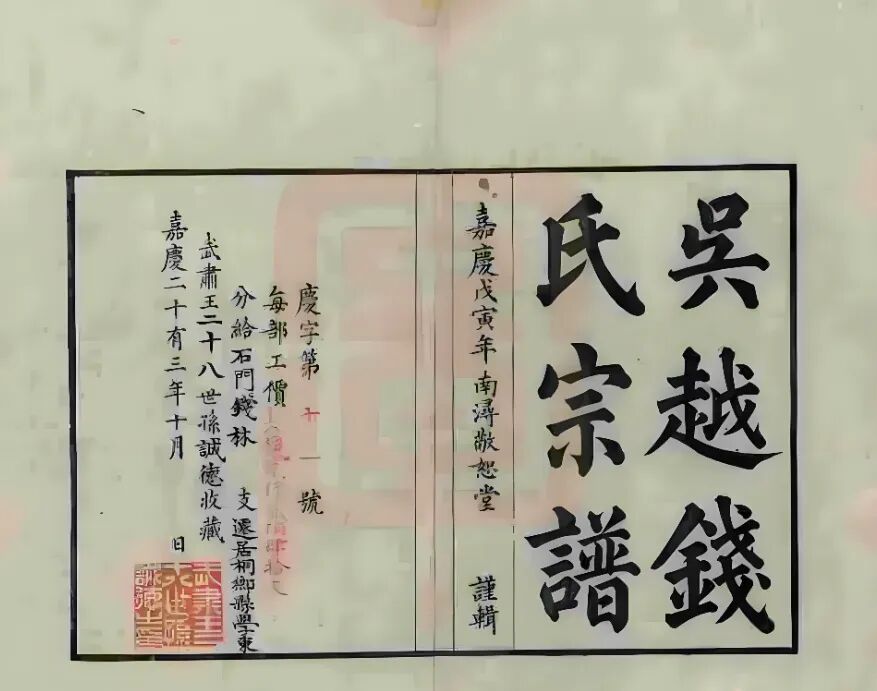 吳越錢
氏宗譜
嘉慶戊寅年南潯敬恕堂 謹輯
慶字第十一號
每部工價
分給石門錢林 支遷居桐鄉縣學東
武肅王二十八世孫誠德收藏
嘉慶二十有三年十月 日